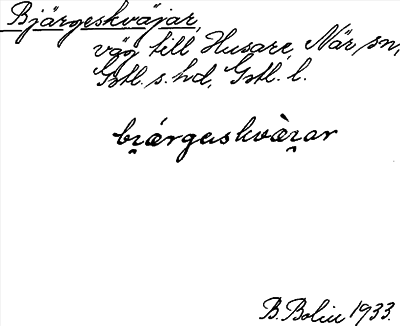 Bjärgeskväjar,
väg till Husarve, När sn,
Gotl. s. hd, Gotl. l.
bi̯árgæskvàri̯ar
B. Bolin 1933.